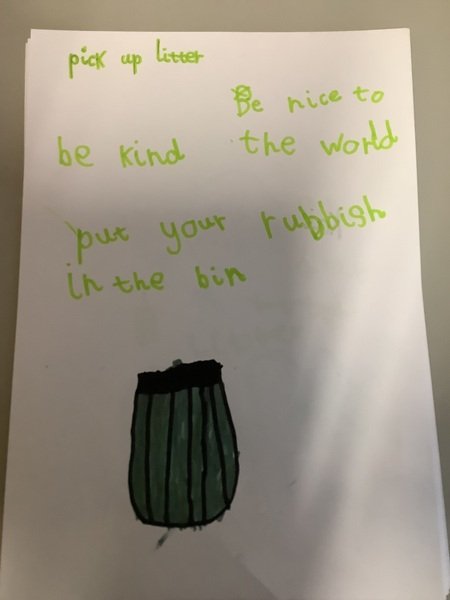 pick up litter
Be nice to
be kind
the world
put your rubbish
in the bin